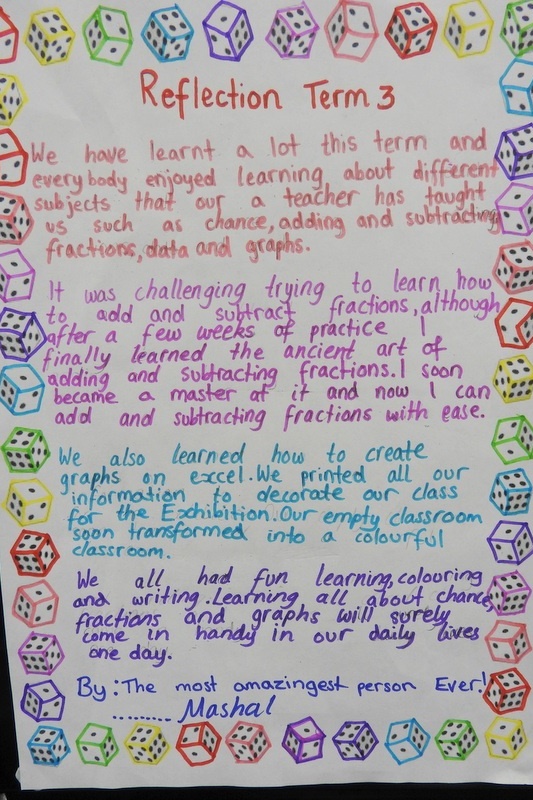 Reflection Term 3
We have learnt a lot this term and
everybody enjoyed learning about different
subjects that our a teacher has taught
us such as chance, adding and subtracting
fractions, data and graphs.
It was challenging trying to learn how
to add and subtract fractions, although
after a few weeks of practice I
finally learned the ancient art of
adding and subtracting fractions. I soon
became a master at it and now I can
add and subtracting fractions with ease.
We also learned how to create
graphs on excel. We printed all our
information to decorate our class
for the Exhibition. Our empty classroom
soon transformed into a colourful
classroom.
We all had fun learning, colouring
and writing. Learning all about chance,
fractions and graphs will surely
come in handy in our daily lives
one day.
By: The most amazingest person Ever!
......... Mashal